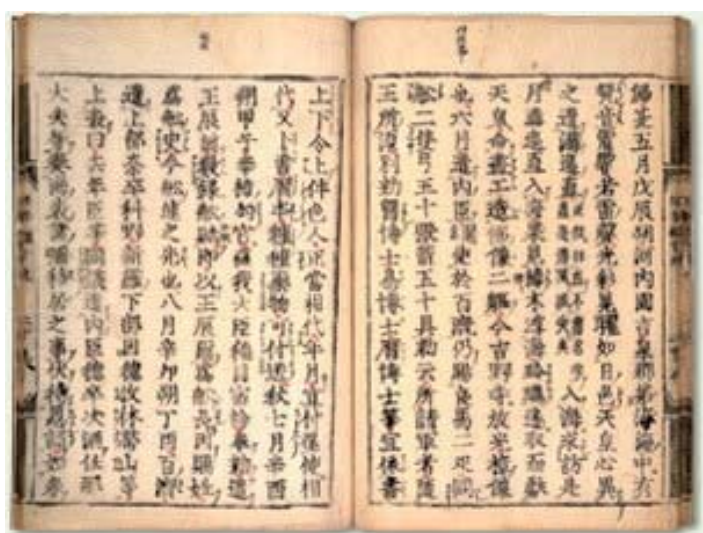 歸焉五月戊辰朔河内國言泉郡茅渟海中有
梵音震響若雷聲光彩晃曜如日色天皇心異
之遣溝邊直入海求訪是
月溝邊直入海果見樟木浮海玲瓏遂取而獻
天皇命畫工造佛像二軀今吉野寺放光樟像
也六月遣内臣使於百濟仍賜良馬二疋同
船二隻弓五十張箭五十具勅云所請軍者隨
王所須別勅醫博士易博士暦博士等宜依番
上下今上件色人正當相代年月宜付還使相
代又卜書暦本種種藥物可付送秋七月辛酉
朔甲子幸樟勾宮蘇我大臣稻目宿祢奉勅遣
王辰爾數録船賦即以王辰爾爲船長因賜姓
爲船史今船連之先也八月辛卯朔丁酉百濟
遣上部奈率科野新羅下部固德汶休帶山等
上表曰去年臣等同議遣内臣德率次酒任那
大夫等奏海表諸彌移居之事伏待恩詔如春